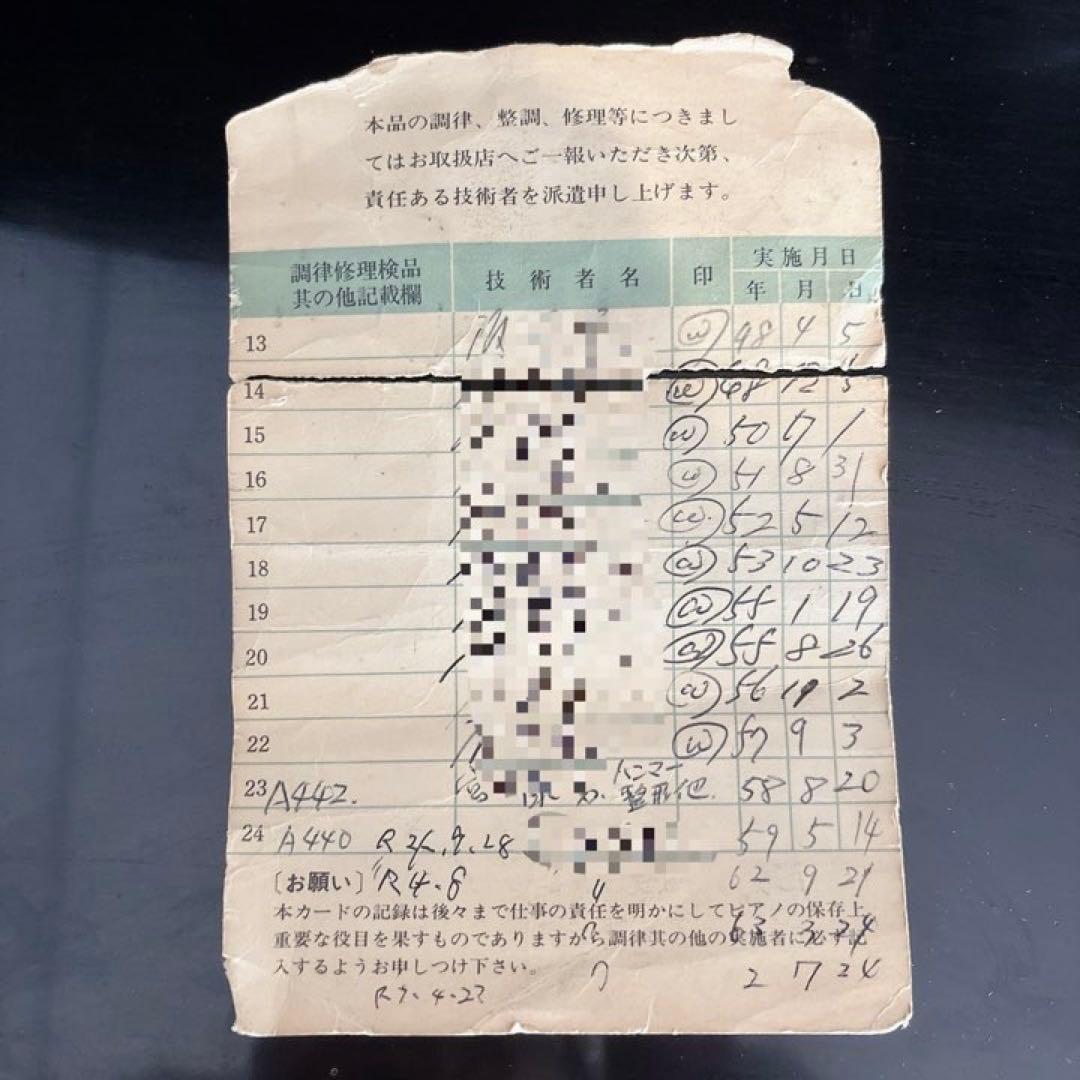 本品の調律、整調、修理等につきまし
てはお取扱店へご一報いただき次第、
責任ある技術者を派遣申し上げます。
調律修理検品
其の他記載欄
技術者名
印
実施月日
年 月 日
13 48 4 5
14 48 12
15 50 7 1
16 51 8 31
17 52 5 12
18 53 10 23
19 55 1 19
20 55 8 26
21 56 2
22 57 9 3
23 A442. ハンマー
整形他 58 8 20
24 A440 59 5 14
〔お願い〕 R4.8 〃 62 9 21
本カードの記録は後々まで仕事の責任を明かにしてピアノの保存上
重要な役目を果すものでありますから調律其の他の実施者に必ず記
入するようお申しつけ下さい。
63 3 24
2 7 24
R7.4.27